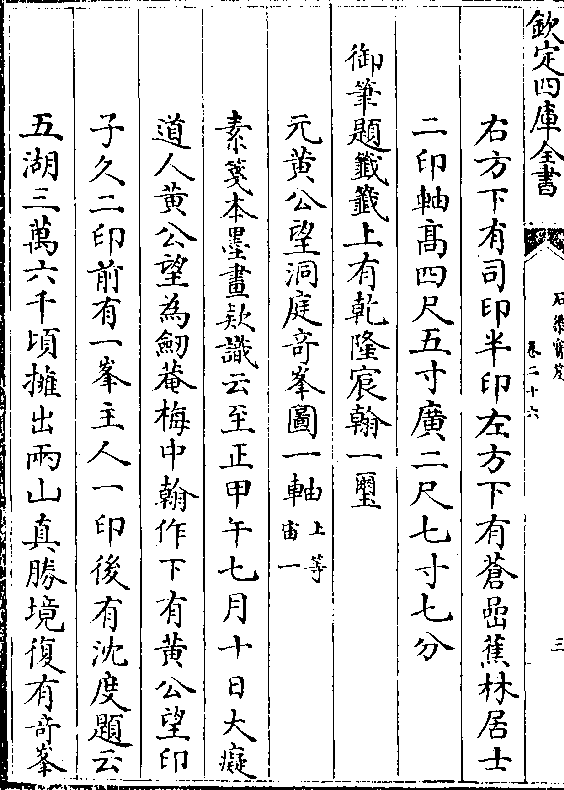 欽定四庫全書
石渠寶笈
卷二十六
三
右方下有司印半印左方下有蒼嵒蕉林居士
二印軸髙四尺五寸廣二尺七寸七分
御筆題籖籖上有乾隆宸翰一璽
元黄公望洞庭竒峯圖一軸上等宙一
素箋本墨畫欵識云至正甲午七月十日大癡
道人黄公望為朂菴梅中翰作下有黄公望印
子久二印前有一峯主人一印後有沈度題云
五湖三萬六千頃擁出兩山真勝境復有竒峯